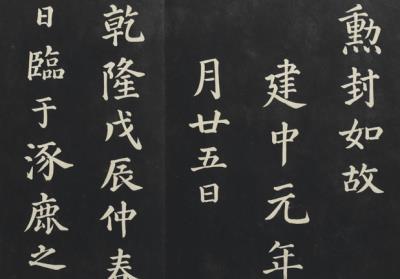 勲封如故
建中元年
月廿五日
乾隆戊辰仲春
日臨于涿鹿之